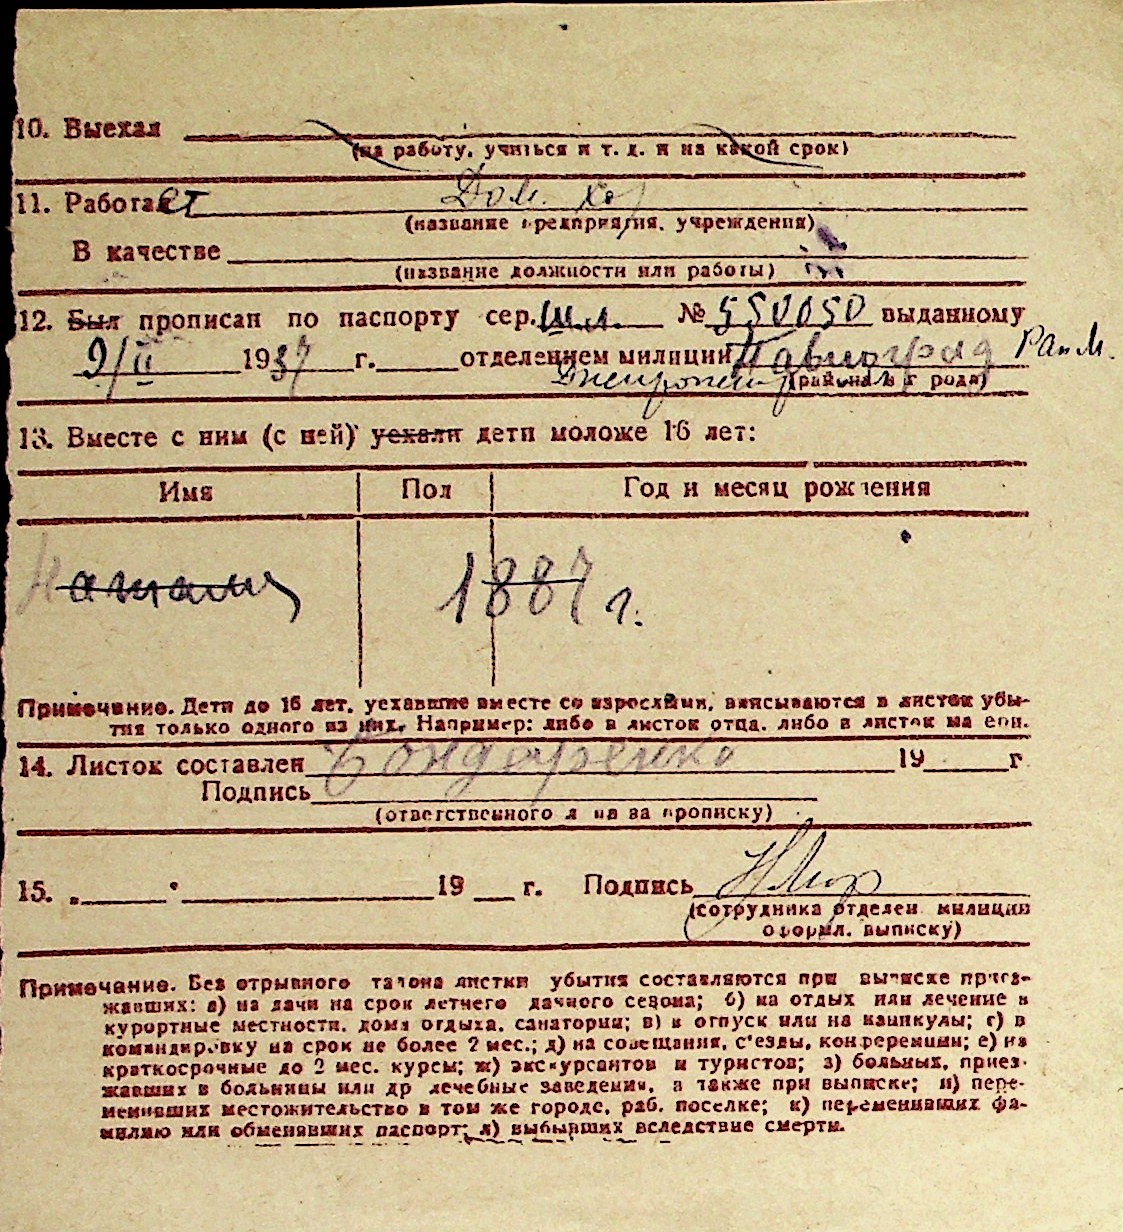 10. Выехал
(на работу, учиться и т. д. и на какой срок)
11. Работает Дом. хоз
(название предприятия, учреждения)
В качестве
(название должности или работы)
12. Был прописан по паспорту сер. № 550050 выданному
9/II 1937 г. отделением милиции Павлоград РайМ.
Днепропетр (района и города)
13. Вместе с ним (с ней) уехали дети моложе 16 лет:
Имя Пол Год и месяц рождения
1887 г.
Примечание. Дети до 16 лет, уехавшие вместе со взрослыми, вписываются в листок убы-
тия только одного из них. Например: либо в листок отца, либо в листок матери.
14. Листок составлен Бондаренко 19 г
Подпись
(ответственного лица за прописку)
15. 19 г. Подпись
(сотрудника отделен милиции
оформл. выписку)
Примечание. Без отрывного талона листки убытия составляются при выписке приез-
жавших: а) на дачи на срок летнего дачного сезона; б) на отдых или лечение в
курортные местности, дома отдыха, санатории; в) в отпуск или на каникулы; г) в
командировку на срок не более 2 мес.; д) на совещания, с'езды, конференции; е) на
краткосрочные до 2 мес. курсы; ж) экскурсантов и туристов; з) больных, приез-
жавших в больницы или др лечебные заведения, а также при выписке; и) пере-
менивших местожительство в том же городе, раб. поселке; к) переменивших фа-
милию или обменявших паспорт; л) выбывших вследствие смерти.